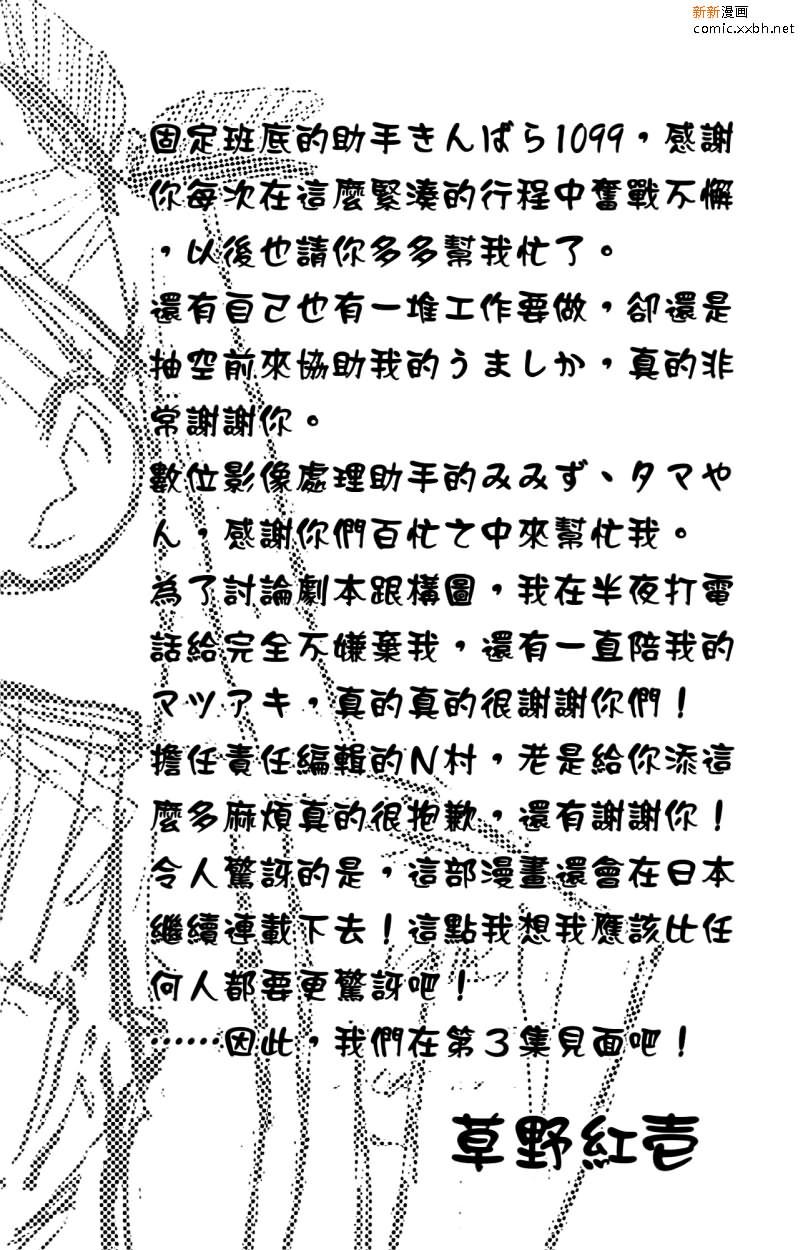 新新漫画
comic.xxbh.net
固定班底的助手きんばら1099，感謝
你每次在這麼緊湊的行程中奮戰不懈
，以後也請你多多幫我忙了。
還有自己也有一堆工作要做，卻還是
抽空前來協助我的うましか，真的非
常謝謝你。
數位影像處理助手的みみず、タマや
ん，感謝你們百忙之中來幫忙我。
為了討論劇本跟構圖，我在半夜打電
話給完全不嫌棄我，還有一直陪我的
マツアキ，真的真的很謝謝你們！
擔任責任編輯的N村，老是給你添這
麼多麻煩真的很抱歉，還有謝謝你！
令人驚訝的是，這部漫畫還會在日本
繼續連載下去！這點我想我應該比任
何人都要更驚訝吧！
……因此，我們在第３集見面吧！
草野紅壱